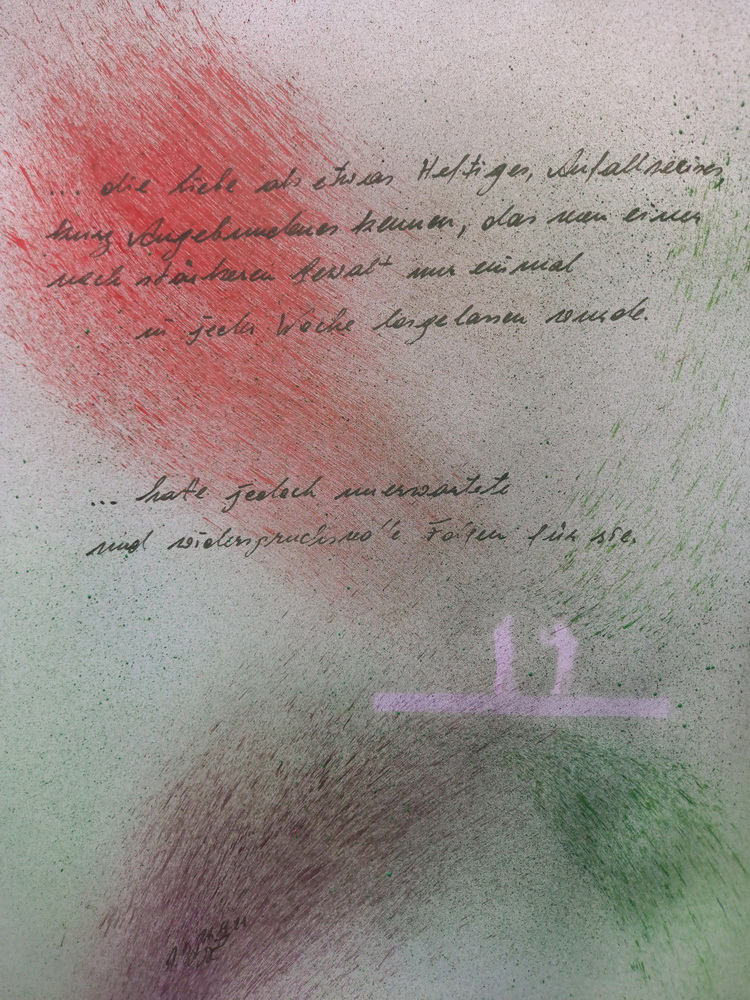 ... die Liebe als etwas Heftiges, Anfallweises
kurz Angebundenes kennen, das von einer
noch stärkeren Gewalt nur einmal
in jeder Woche losgelassen wurde.
... hatte jedoch unerwartete
und widerspruchsvolle Folgen für sie.